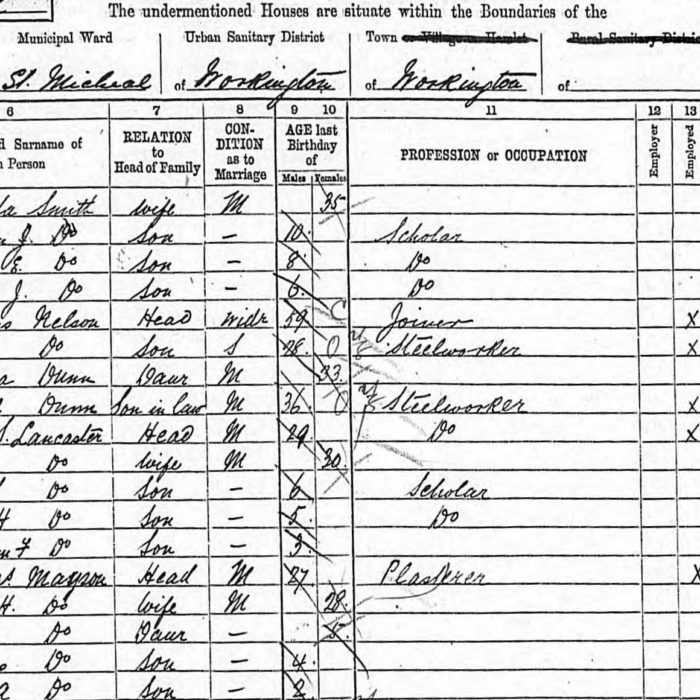 The undermentioned Houses are situate within the Boundaries of the
Municipal Ward Urban Sanitary District Town or Village or Hamlet Rural Sanitary District
St. Micheal of Workington of Workington of
6 7 8 9 10 11 12 13
d Surname of Person RELATION to Head of Family CON-DITION as to Marriage AGE last Birthday of Males Females PROFESSION or OCCUPATION Employer Employed
da Smith wife M 35
J. Do Son — 10 Scholar
E Do Son — 8 Do
J. Do Son — 6 Do
Nelson Head Widr 59 Joiner X
Do Son S 28 Steelworker X
Dunn Daur M 23
Dunn Son in law M 36 Steelworker X
S. Lancaster Head M 29 Do X
Do wife M 30
Do Son — 6 Scholar
H Do Son — 5 Do
F Do Son — 3
Mayson Head M 27 Plasterer X
H. Do wife M 28
Do Daur — 5
Do Son — 4
a Do Son — 2